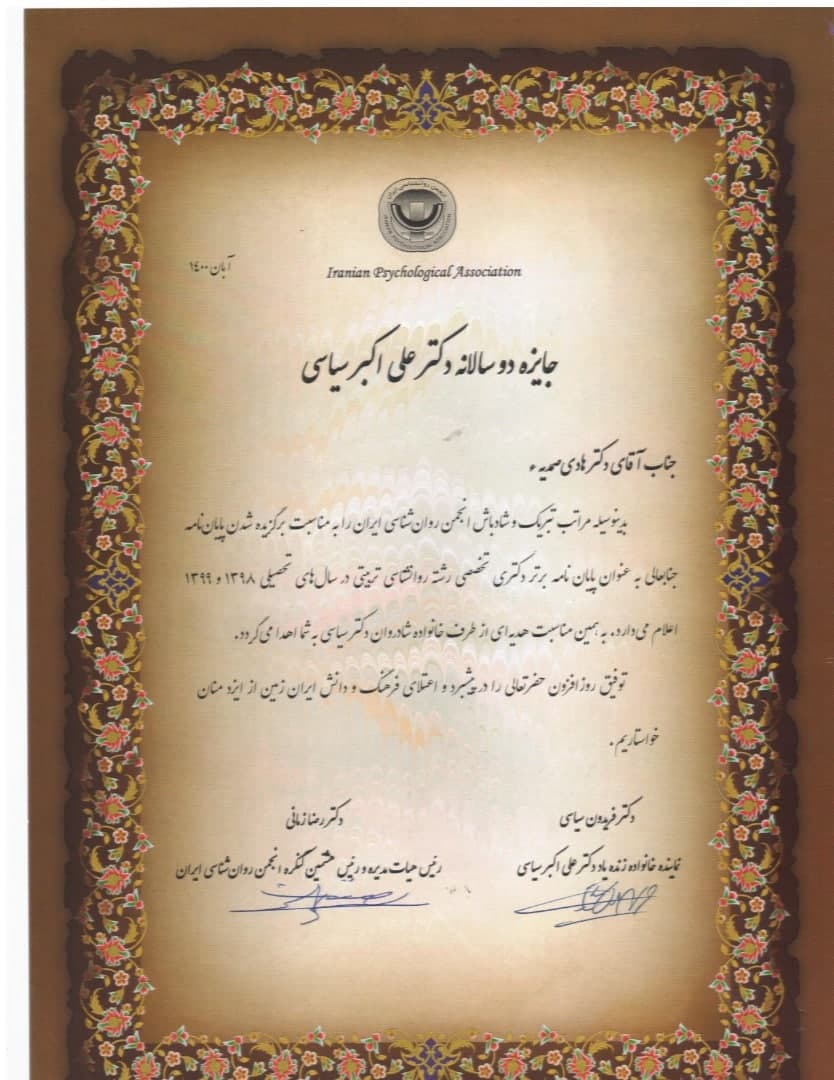 انجمن روانشناسی ایران
IRANIAN PSYCHOLOGICAL ASSOCIATION
Iranian Psychological Association
آبان ۱۴۰۰
جایزه دو سالانه دکتر علی اکبر سیاسی
جناب آقای دکتر هادی صمدیه ء
بدینوسیله مراتب تبریک و شادباش انجمن روان‌شناسی ایران را به مناسبت برگزیده شدن پایان‌نامه
جنابعالی به عنوان پایان نامه برتر دکتری تخصصی رشته روانشناسی تربیتی در سال‌های تحصیلی ۱۳۹۸ و ۱۳۹۹
اعلام می‌دارد. به همین مناسبت هدیه‌ای از طرف خانواده شادروان دکتر سیاسی به شما اهدا می‌گردد.
توفیق روزافزون حضرتعالی را در پیشبرد و اعتلای فرهنگ و دانش ایران زمین از ایزد منان
خواستاریم.
دکتر فریدون سیاسی
نماینده خانواده زنده یاد دکتر علی اکبر سیاسی
دکتر رضا زمانی
رئیس هیات مدیره و رئیس هشتمین کنگره انجمن روان‌شناسی ایران